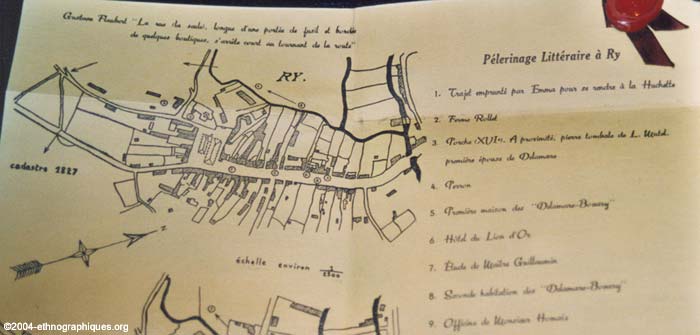 Gustave Flaubert "La rue (la seule), longue d'une portée de fusil et bordée
de quelques boutiques, s'arrête court au tournant de la route"
RY.
cadastre 1827
N
échelle environ 1/2500
Pélerinage Littéraire à Ry
1. Trajet emprunté par Emma pour se rendre à la Huchette
2. Ferme Rollet
3. Porche (XVIe). A proximité, pierre tombale de L. Mutel
première épouse de Delamare
4. Perron
5. Première maison des "Delamare-Bovary"
6. Hôtel du Lion d'Or
7. Étude de Maître Guillaumin
8. Seconde habitation des "Delamare-Bovary"
9. Officine de Monsieur Homais
©2004-ethnographiques.org